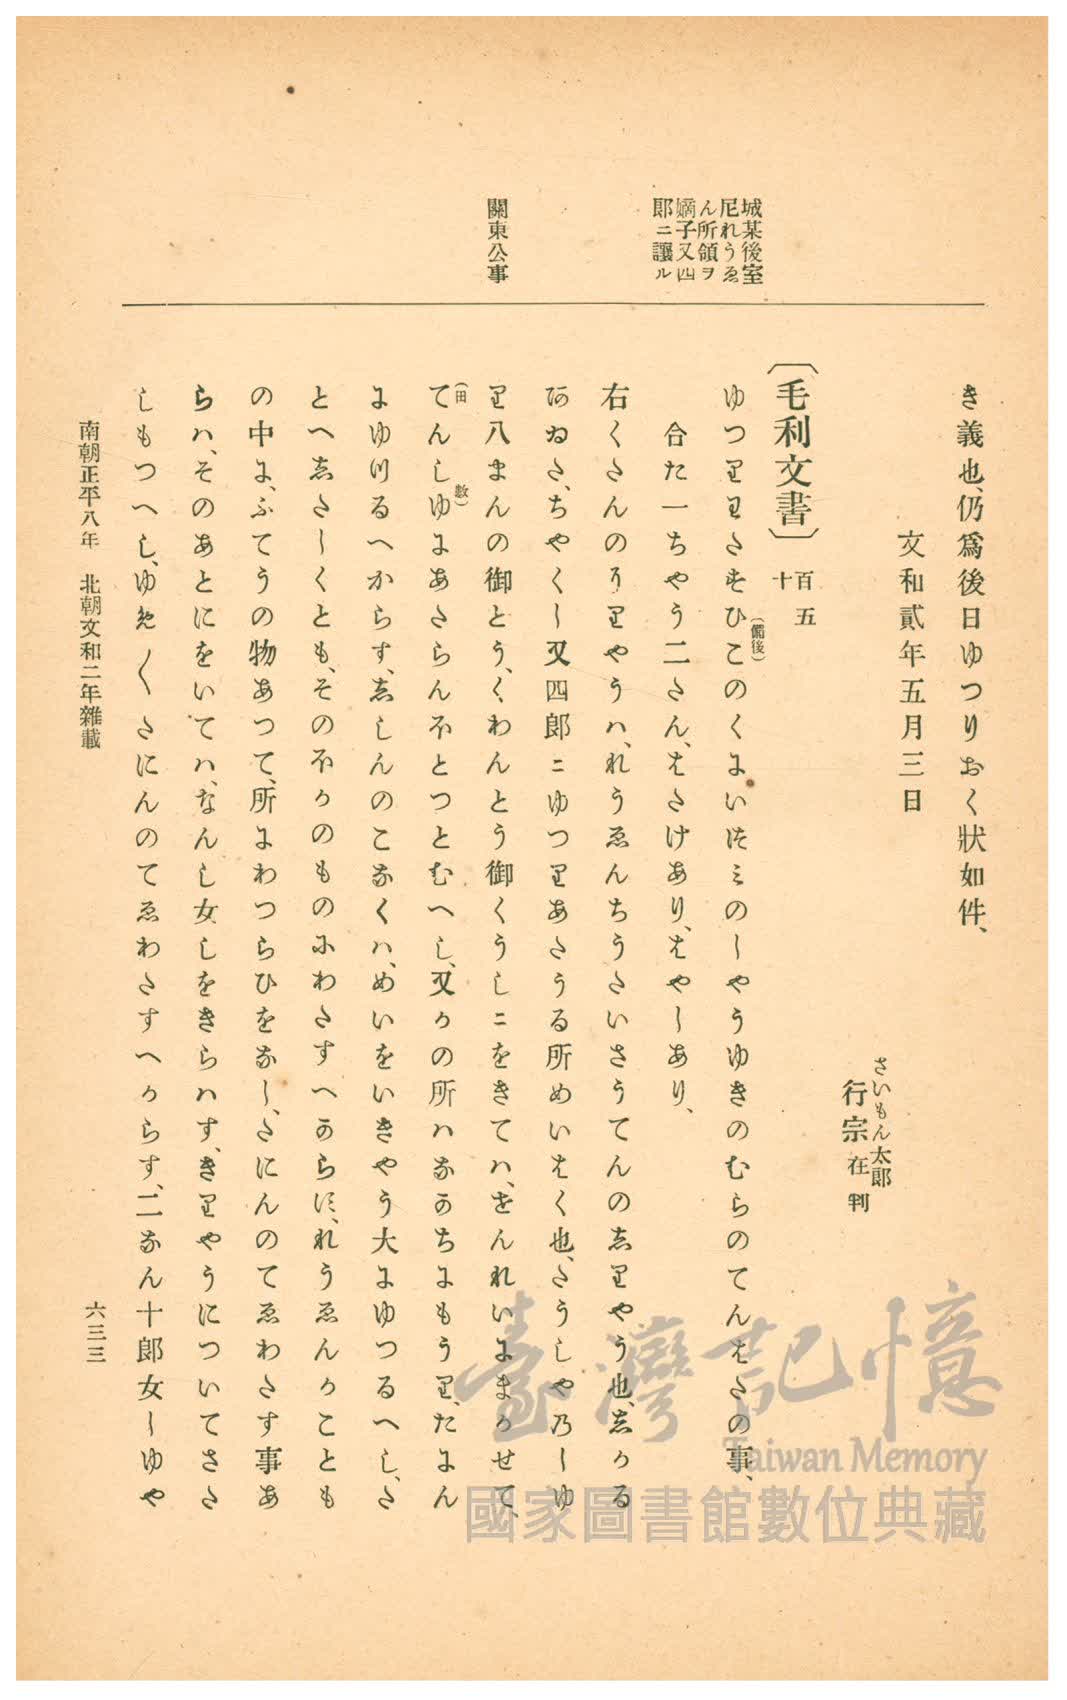 城某後室
尼れうゑ
ん所領ヲ
嫡子又四
郎ニ讓ル
關東公事
き義也、仍爲後日ゆつりおく狀如件、
文和貳年五月三日
さいもん太郎
行宗在判
〔毛利文書〕百五十
ゆつりわたすひこ(備後)のくにいつミのしやうゆきのむらのてんはたの事、
合た一ちやう二たん、はたけあり、はやしあり、
右くたんのりりやうハ、れうゑんちうたいさうてんのしりやう也、しかる
あゐた、ちやくし又四郎ニゆつりあたうる所めいはく也、たうしや乃しゆ
り八まんの御とう、くわんとう御くうしニをきてハ、せんれいにまかせて、
てん(田)しゆ(數)にあたらんほとつとむへし、又かの所ハなかちにもうり、たにん
にゆつるへからす、ししんのこなくハ、めいをいきやう大にゆつるへし、た
とへしたしくとも、そのほかのものにわたすへからす、れうゑんかことも
の中に、ふてうの物あつて、所にわつらひをなし、たにんのてゑわたす事あ
らハ、そのあとにをいてハ、なんし女しをきらハす、きりやうについてさた
しもつへし、ゆめ〱たにんのてゑわたすへからす、二なん十郎女しゆや
南朝正平八年　北朝文和二年雜載
六三三
臺灣記憶
Taiwan Memory
國家圖書館數位典藏